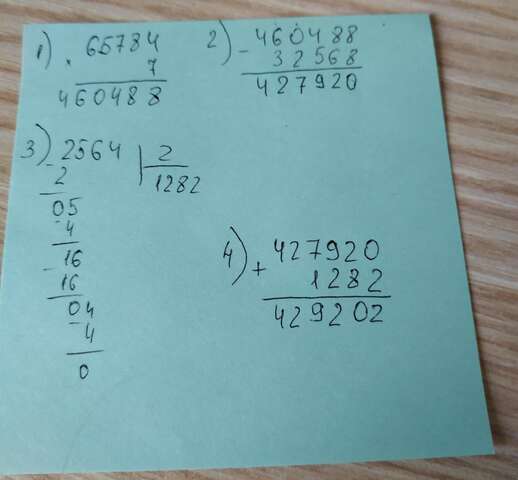 1) × 65784
7
460488
2) - 460488
32568
427920
3) - 2564 | 2
2 | 1282
05
- 4
16
- 16
04
- 4
0
4) + 427920
1282
429202